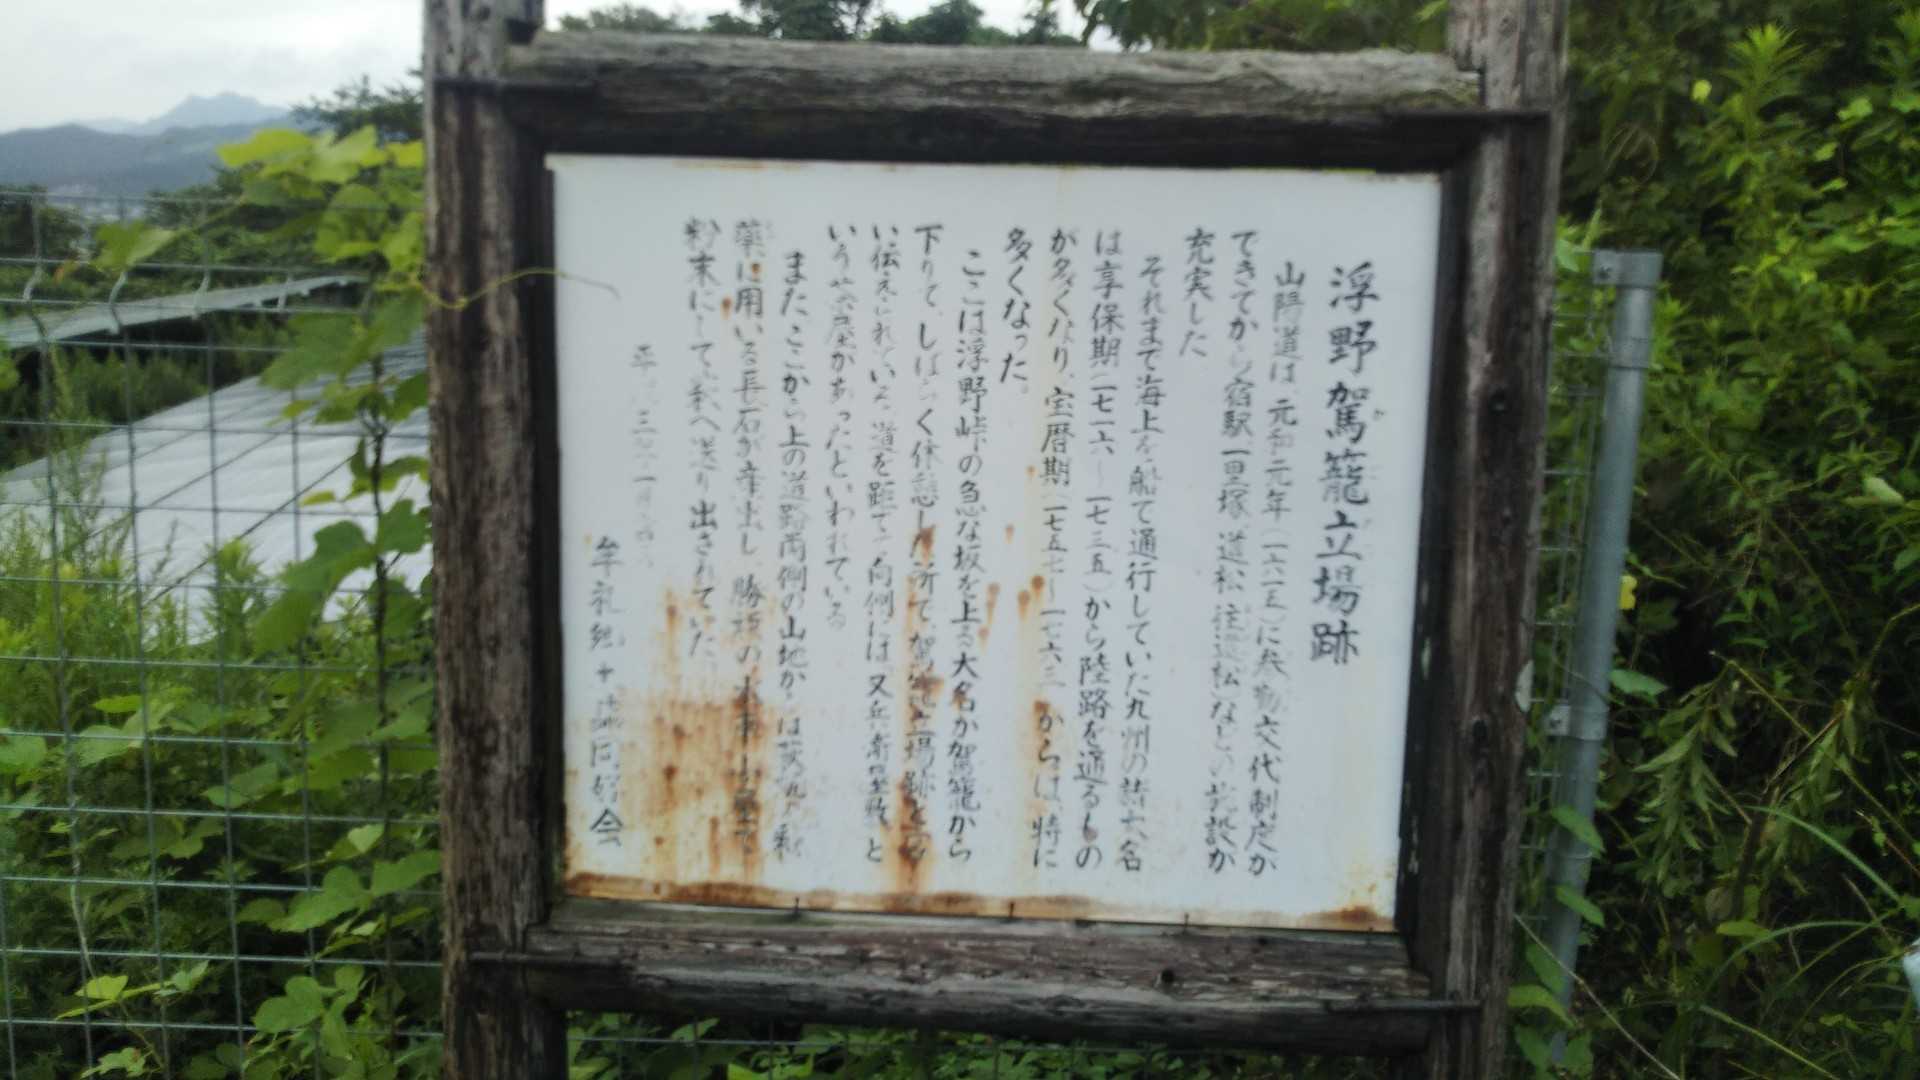 浮野駕籠立場跡
山陽道は、元和元年(一六一五)に参勤交代制度が
できてから宿駅、一里塚、道松(往還松)などの施設が
充実した
それまで海上を船で通行していた九州の諸大名
は享保期(一七一六〜一七三五)から陸路を通るもの
が多くなり、宝暦期(一七五七〜一七六三)からは、特に
多くなった。
ここは浮野峠の急な坂を上る大名が駕籠から
下りて、しばらく休憩した所で、駕籠立場跡と
い伝えられている。道を距てた向側には又兵衛屋敷と
いう茶屋があったといわれている
またここから上の道路両側の山地からは
薬に用いる長石が産出し、勝坂の水車小屋で
粉末にして 送り出されていた
牟礼 同好会